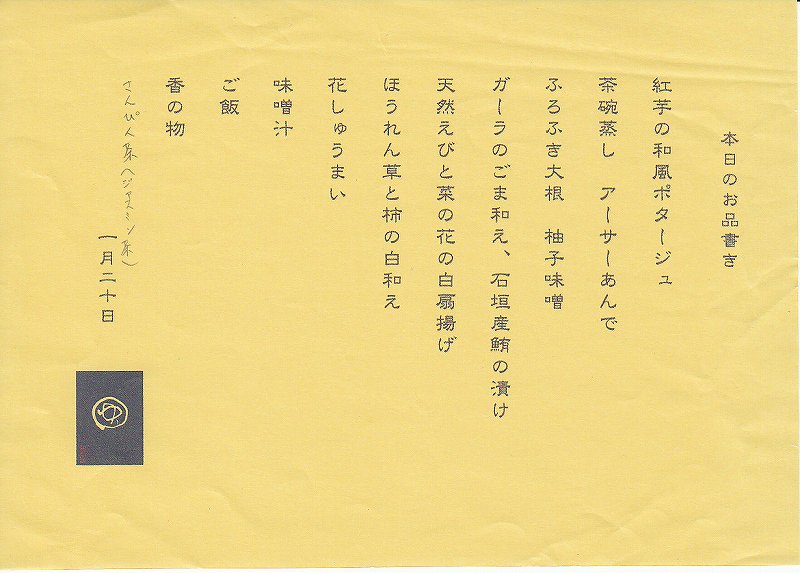 本日のお品書き
紅芋の和風ポタージュ
茶碗蒸し　アーサーあんで
ふろふき大根　柚子味噌
ガーラのごま和え、石垣産鮪の漬け
天然えびと菜の花の白扇揚げ
ほうれん草と柿の白和え
花しゅうまい
味噌汁
ご飯
香の物
さんぴん茶(ジャスミン茶)
一月二十日
ゆ